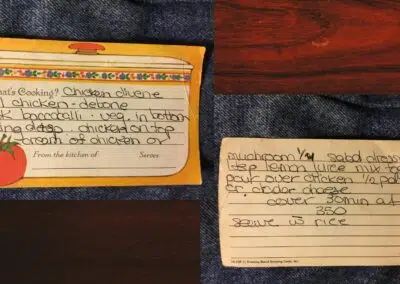 hat's Cooking? Chicken divene
chicken - debone
veg. in bottom
chicken on top
cream of chicken or
From the kitchen of: Serves
mushroom 1/4 salad dress
tsp lemon juice mix tog
pour over chicken 1/2 pa
cheddar cheese
cover 30 min at
350
serve w̄ rice